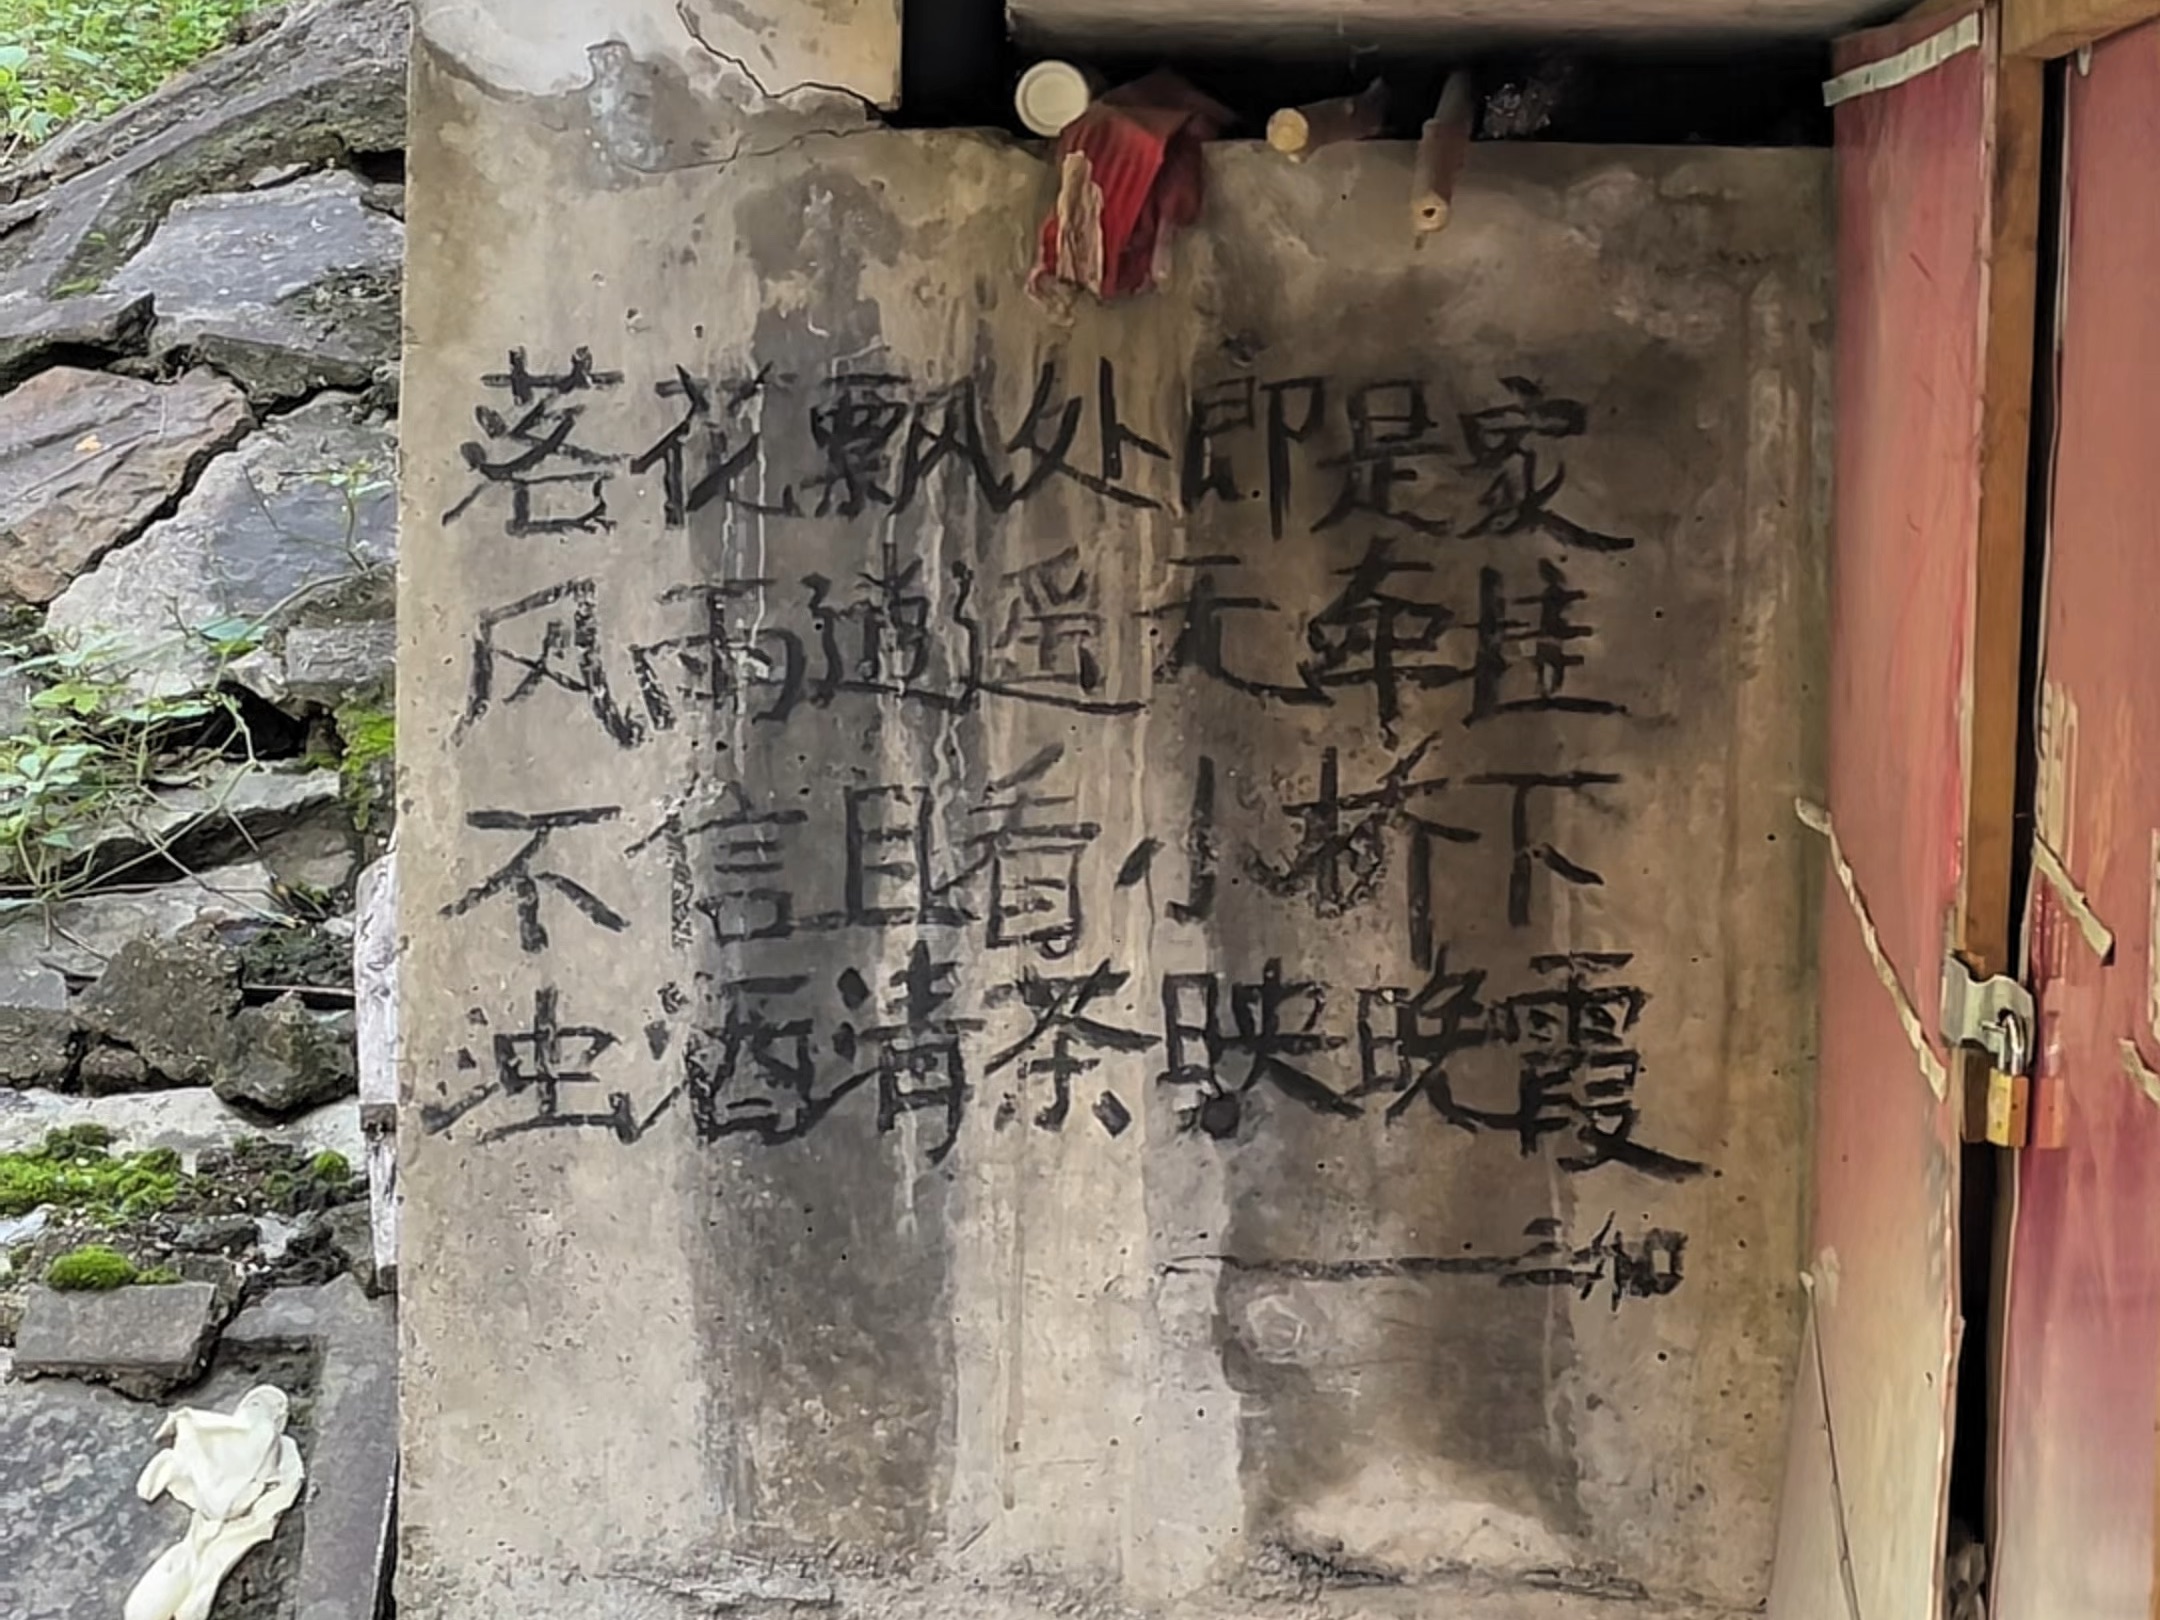 落花飘处即是家
风雨逍遥无牵挂
不信且看小桥下
浊酒清茶映晚霞
——三加